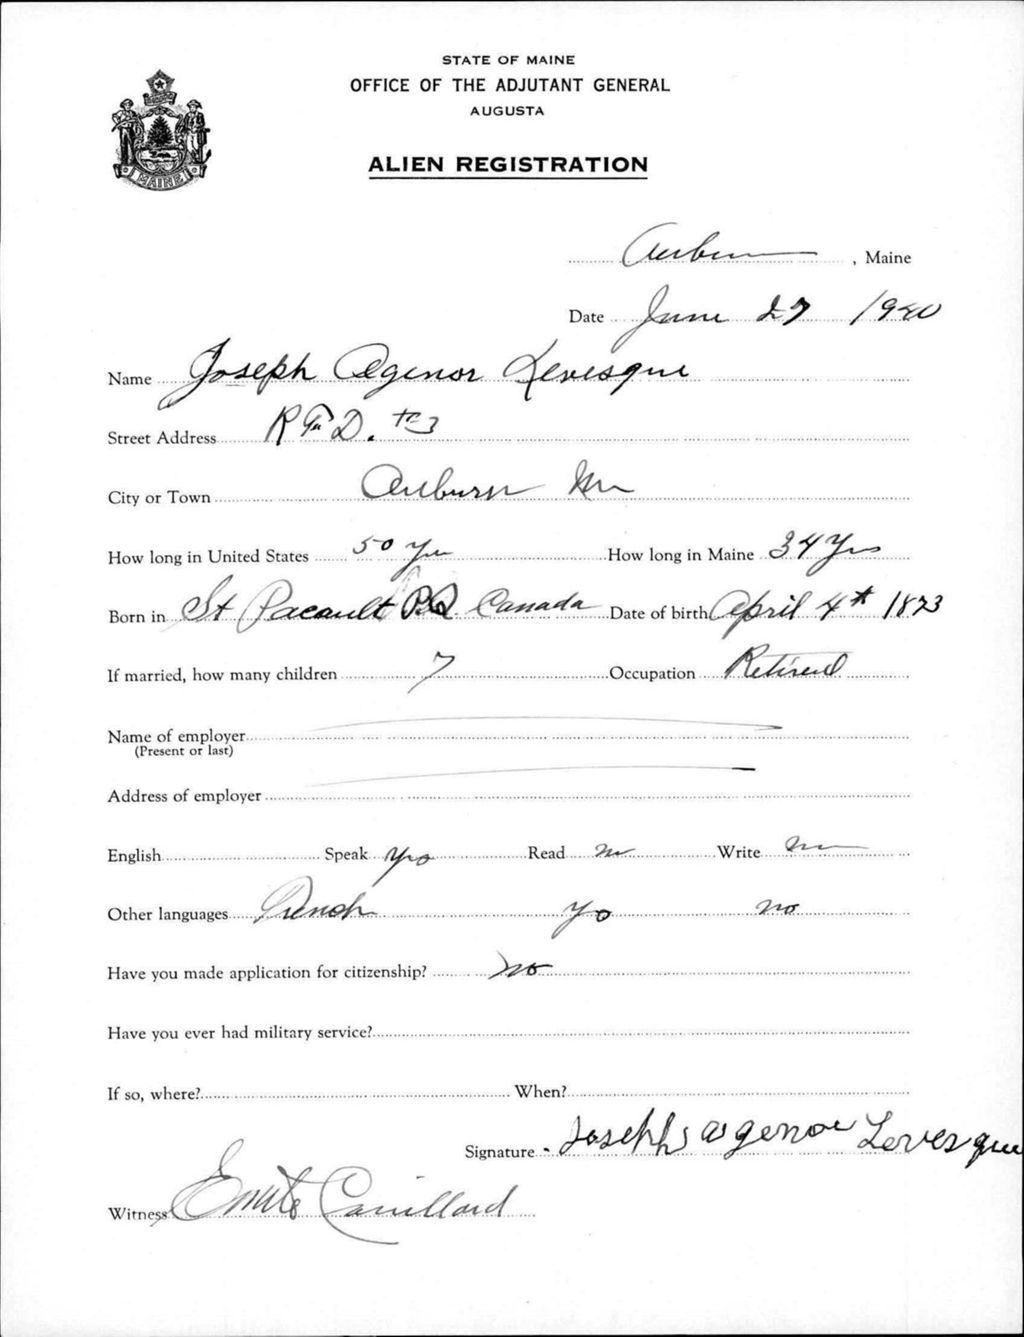 STATE OF MAINE
OFFICE OF THE ADJUTANT GENERAL
AUGUSTA
ALIEN REGISTRATION
MAINE
Auburn, Maine
Date June 27 1940
Name Joseph Agenor Levesque
Street Address R F D. #3
City or Town Auburn Me
How long in United States 50 Yrs How long in Maine 34 Yrs
Born in St Pacault P.Q. Canada Date of birth April 4th 1873
If married, how many children 7 Occupation Retired
Name of employer
(Present or last)
Address of employer
English Speak Yes Read no Write no
Other languages French yes no
Have you made application for citizenship? no
Have you ever had military service?
If so, where? When?
Signature Joseph Agenor Levesque
Witness